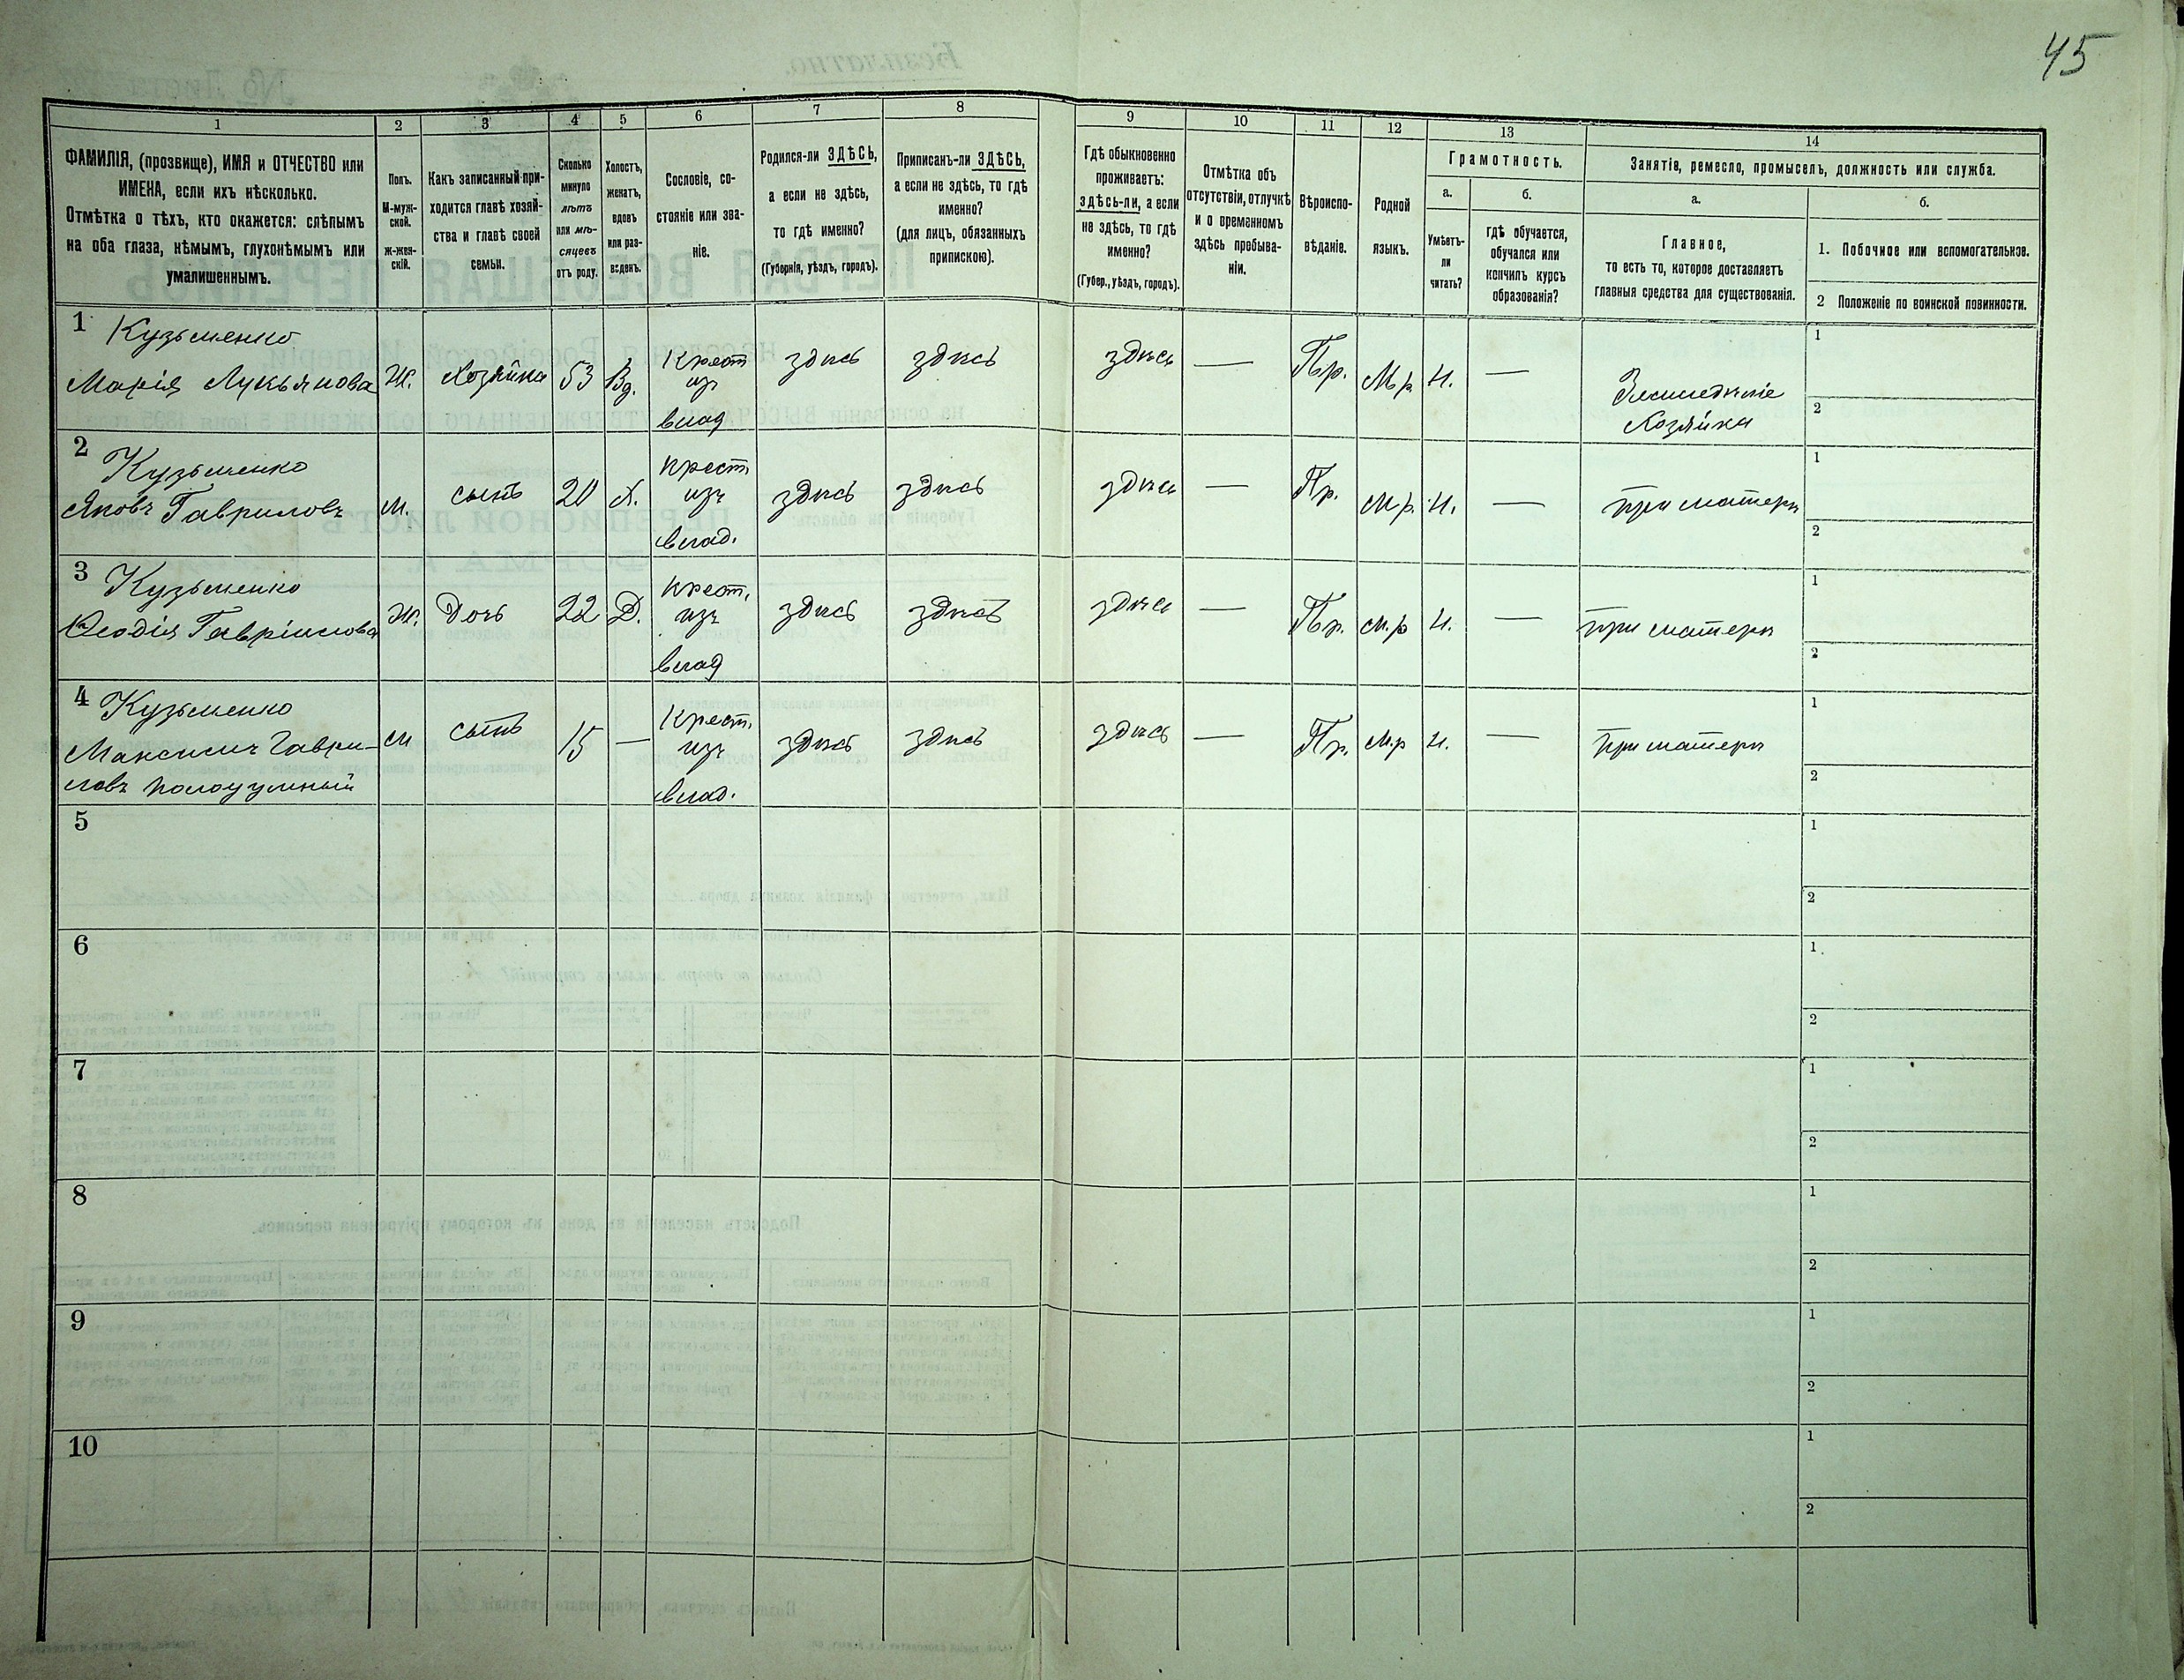 45
1
2
3
4
5
6
7
8
9
10
11
12
13
14
ФАМИЛІЯ, (прозвище), ИМЯ и ОТЧЕСТВО или
ИМЕНА, если ихъ нѣсколько.
Отмѣтка о тѣхъ, кто окажется: слѣпымъ
на оба глаза, нѣмымъ, глухонѣмымъ или
умалишеннымъ.
Полъ.
М-муж-
ской.
Ж-жен-
скій.
Какъ записанный при-
ходится главѣ хозяй-
ства и главѣ своей
семьи.
Сколько
минуло
лѣтъ
или мѣ-
сяцевъ
отъ роду.
Холостъ,
женатъ,
вдовъ
или раз-
веденъ.
Сословіе, со-
стояніе или зва-
ніе.
Родился-ли ЗДѢСЬ,
а если не здѣсь,
то гдѣ именно?
(Губернія, уѣздъ, городъ).
Приписанъ-ли ЗДѢСЬ,
а если не здѣсь, то гдѣ
именно?
(для лицъ, обязанныхъ
припискою).
Гдѣ обыкновенно
проживаетъ:
здѣсь-ли, а если
не здѣсь, то гдѣ
именно?
(Губер., уѣздъ, городъ).
Отмѣтка объ
отсутствіи, отлучкѣ
и о временномъ
здѣсь пребыва-
ніи.
Вѣроиспо-
вѣданіе.
Родной
языкъ.
Грамотность.
а.
Умѣетъ-
ли
читать?
б.
гдѣ обучается,
обучался или
кончилъ курсъ
образованія?
Занятіе, ремесло, промыселъ, должность или служба.
а.
Главное,
то есть то, которое доставляетъ
главныя средства для существованія.
б.
1. Побочное или вспомогательное.
2 Положеніе по воинской повинности.
1 Кузьменко
Марія Лукьянова Ж. Хозяйка 53 Вд. Крест из влад здѣсь здѣсь здѣсь — Пр. М.р. Н. — Земледѣліе Хозяйка
1
2
2 Кузьменко
Яковъ Гавриловъ М. сынъ 20 Х. крест. изъ влад. здѣсь здѣсь здѣсь — Пр. М.р. Н. — при матери
1
2
3 Кузьменко
Ѳеодія Гавріилова Ж. Дочь 22 Д. крест. изъ влад здѣсь здѣсь здѣсь — Пр. м.р Н. — при матери
1
2
4 Кузьменко
Максимъ Гаври-
ловъ полоумный М сынъ 15 — Крест. изъ влад. здѣсь здѣсь здѣсь — Пр. М.р Н. — при матери
1
2
5
1
2
6
1
2
7
1
2
8
1
2
9
1
2
10
1
2